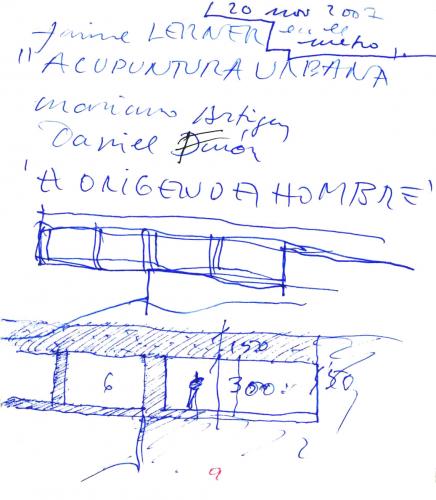 20 nov 2007
en el
metro
Jaime LERNER
"ACUPUNTURA URBANA"
mariano Artigas
Daniel
"A ORIGEN DEA HOMBRE"
150
6
300
150
9